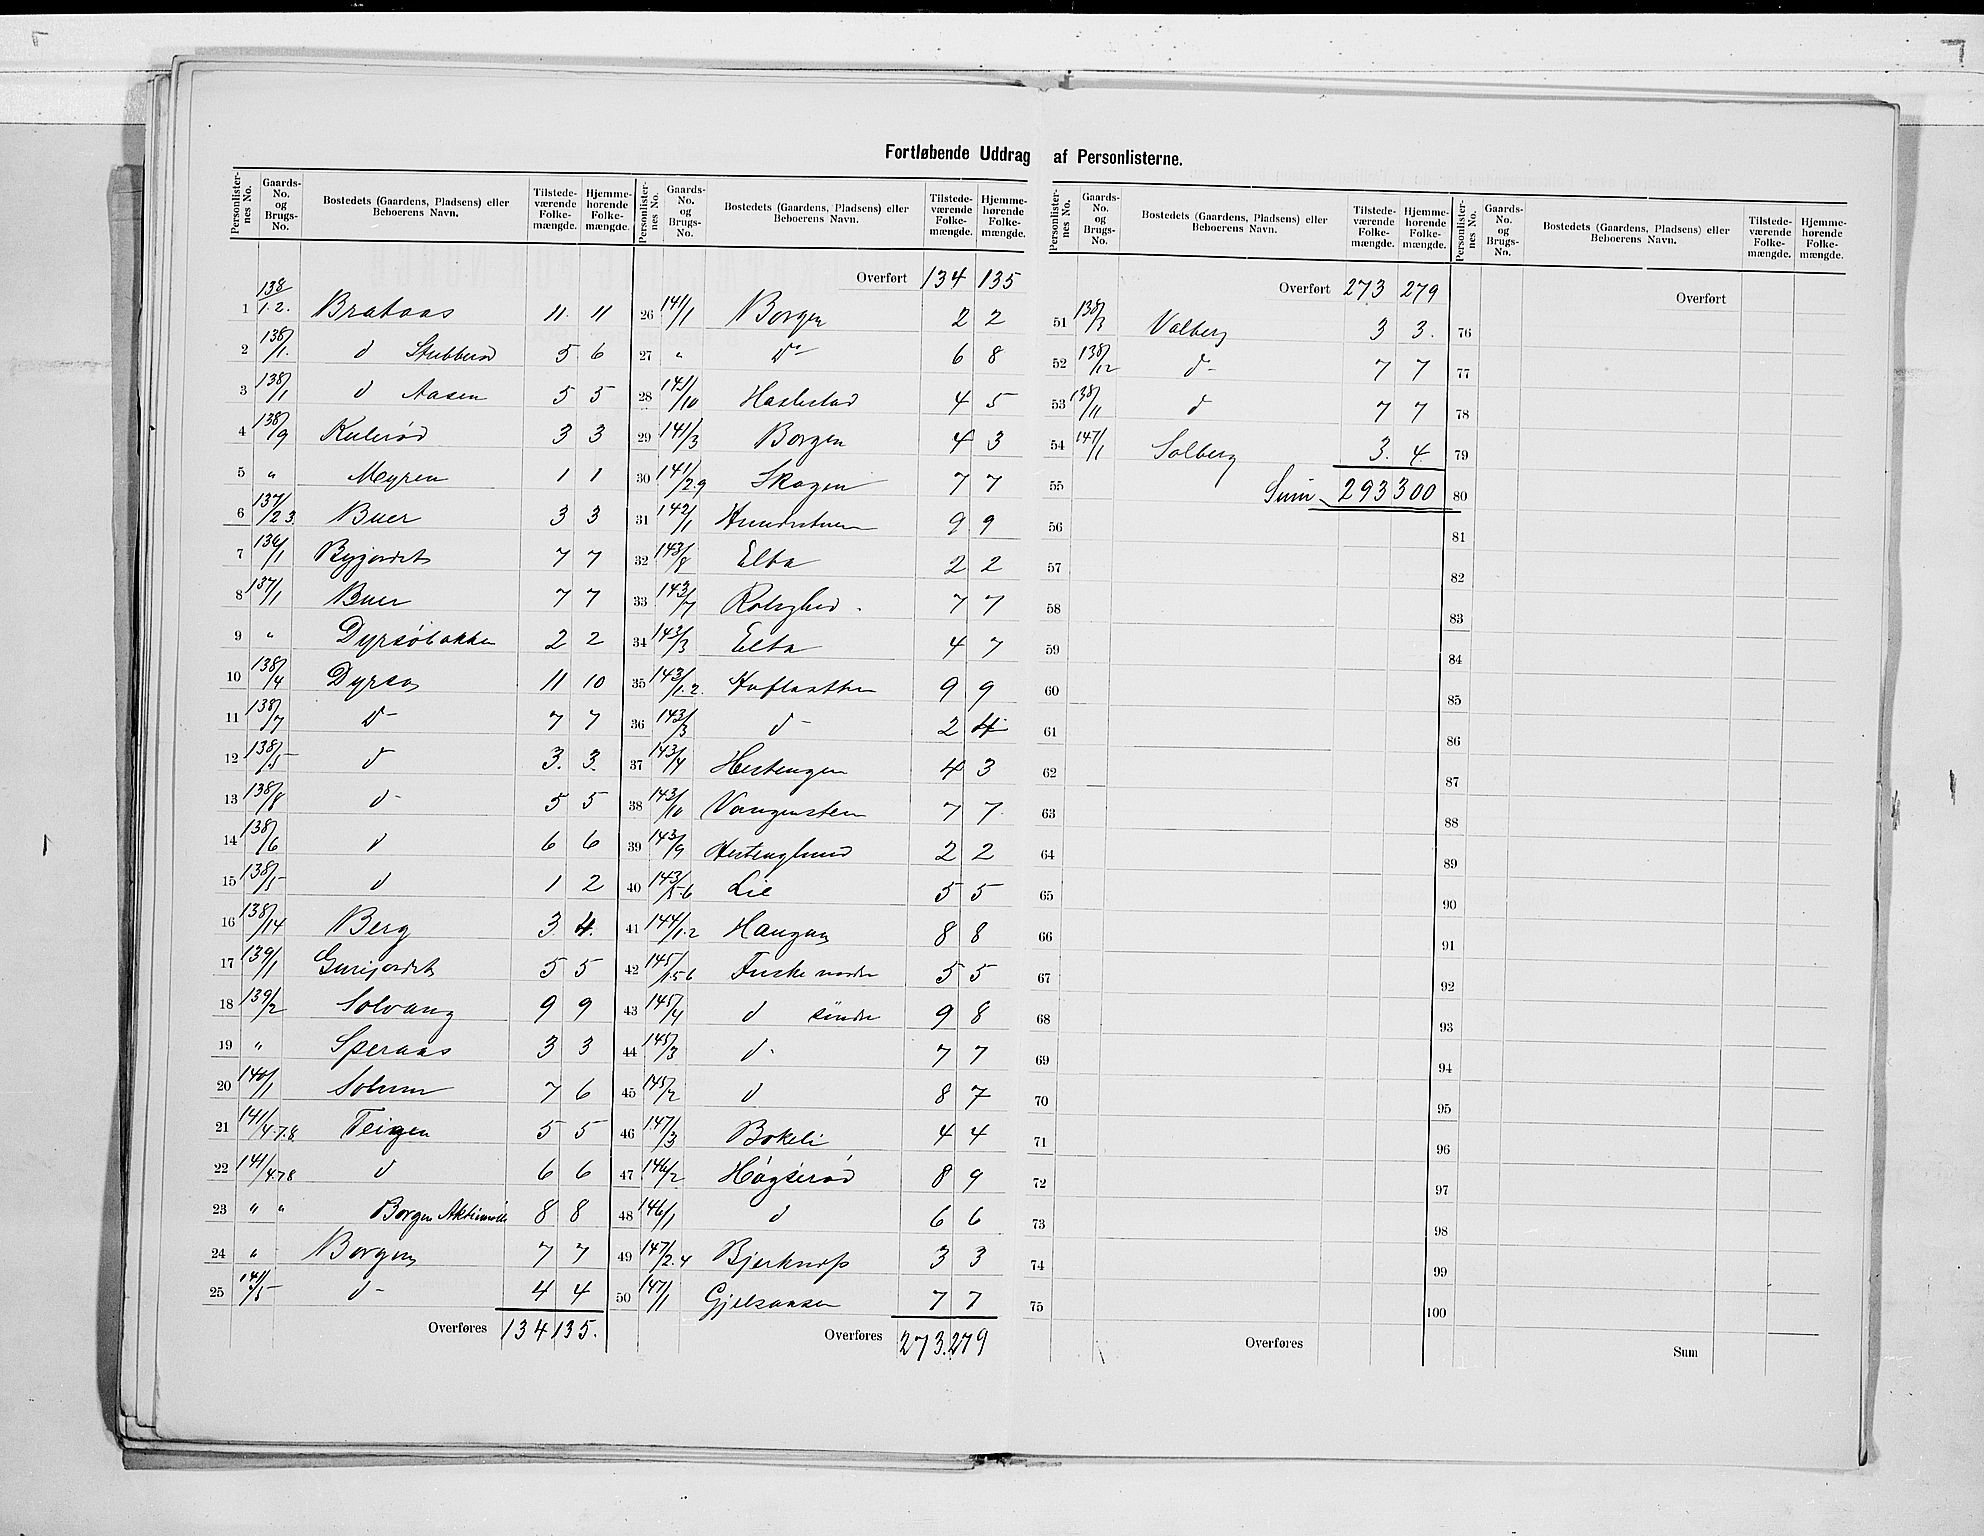 Fortløbende Uddrag af Personlisterne.
Personlister-nes No. Gaards-No. og Brugs-No. Bostedets (Gaardens, Pladsens) eller Beboerens Navn. Tilstede-værende Folke-mængde. Hjemme-hørende Folke-mængde.
1 138/1.2. Brataas 11. 11
2 138/1. d Stubberød 5 6
3 138/1 d Aasen 5 5
4 138/9 Kulerød 3 3
5 " Myren 1 1
6 137/2 3. Buer 3 3
7 136/1 Bygjordet 7 7
8 137/1 Buer 7 7
9 " Dyrsøbakken 2 2
10 138/4 Dyrsø 11 10
11 138/7 d- 7 7
12 138/5 d 3. 3.
13 138/8 d- 5 5
14 138/6 d 6 6
15 138/5 d 1 2
16 138/14 Berg 3 4.
17 139/1 Gurijordet 5 5
18 139/2 Solvang 9 9
19 " Speraas 3 3
20 140/1 Solum 7 6
21 141/4.7.8 Teigen 5 5
22 141/4.7 8 d 6 6
23 " " Borgen Aktiemølle 8 8
24 " Borgen 7 7
25 141/5 d- 4 4
Overføres 134 135.
Personlister-nes No. Gaards-No. og Brugs-No. Bostedets (Gaardens, Pladsens) eller Beboerens Navn. Tilstede-værende Folke-mængde. Hjemme-hørende Folke-mængde.
Overført 134 135
26 141/1 Borgen 2 2
27 " do- 6 8
28 141/10 Haslestad 4 5
29 141/3 Borgen 4 3
30 141/2.9 Skogen 7 7
31 142/1 Hundstuen 9 9
32 143/8 Elba 2 2
33 143/7 Rolighed. 7 7
34 143/3 Elba 4 7
35 143/1.2. 9 9
36 143/3 d- 2 4
37 143/4 Hestengen 4 3
38 143/10 Vangensteen 7 7.
39 143/9 Hestenglund 2 2
40 143/5-6 Lie 5 5
41 144/1.2 Haugan 8 8
42 145/1.5 6 Fuske nordre 5 5
43 145/4 d søndre 9 8
44 145/3 d. 7 7
45 145/2 d 8 7
46 147/3 Bokeli 4 4
47 146/2 Høgsrød 8 9
48 146/1 d 6 6
49 147/2.4 Bjerknes 3 3
50 147/1 Gjelsaasen 7 7
Overføres 273. 279
Personlister-nes No. Gaards-No. og Brugs-No. Bostedets (Gaardens, Pladsens) eller Beboerens Navn. Tilstede-værende Folke-mængde. Hjemme-hørende Folke-mængde.
Overført 273 279
51 138/3 Valberg 3 3.
52 138/12 d- 7 7
53 138/11 d 7 7
54 147/1 Solberg 3. 4.
55 Sum 293 300
56
57
58
59
60
61
62
63
64
65
66
67
68
69
70
71
72
73
74
75
Overføres
Personlister-nes No. Gaards-No. og Brugs-No. Bostedets (Gaardens, Pladsens) eller Beboerens Navn. Tilstede-værende Folke-mængde. Hjemme-hørende Folke-mængde.
Overført
76
77
78
79
80
81
82
83
84
85
86
87
88
89
90
91
92
93
94
95
96
97
98
99
100
Sum